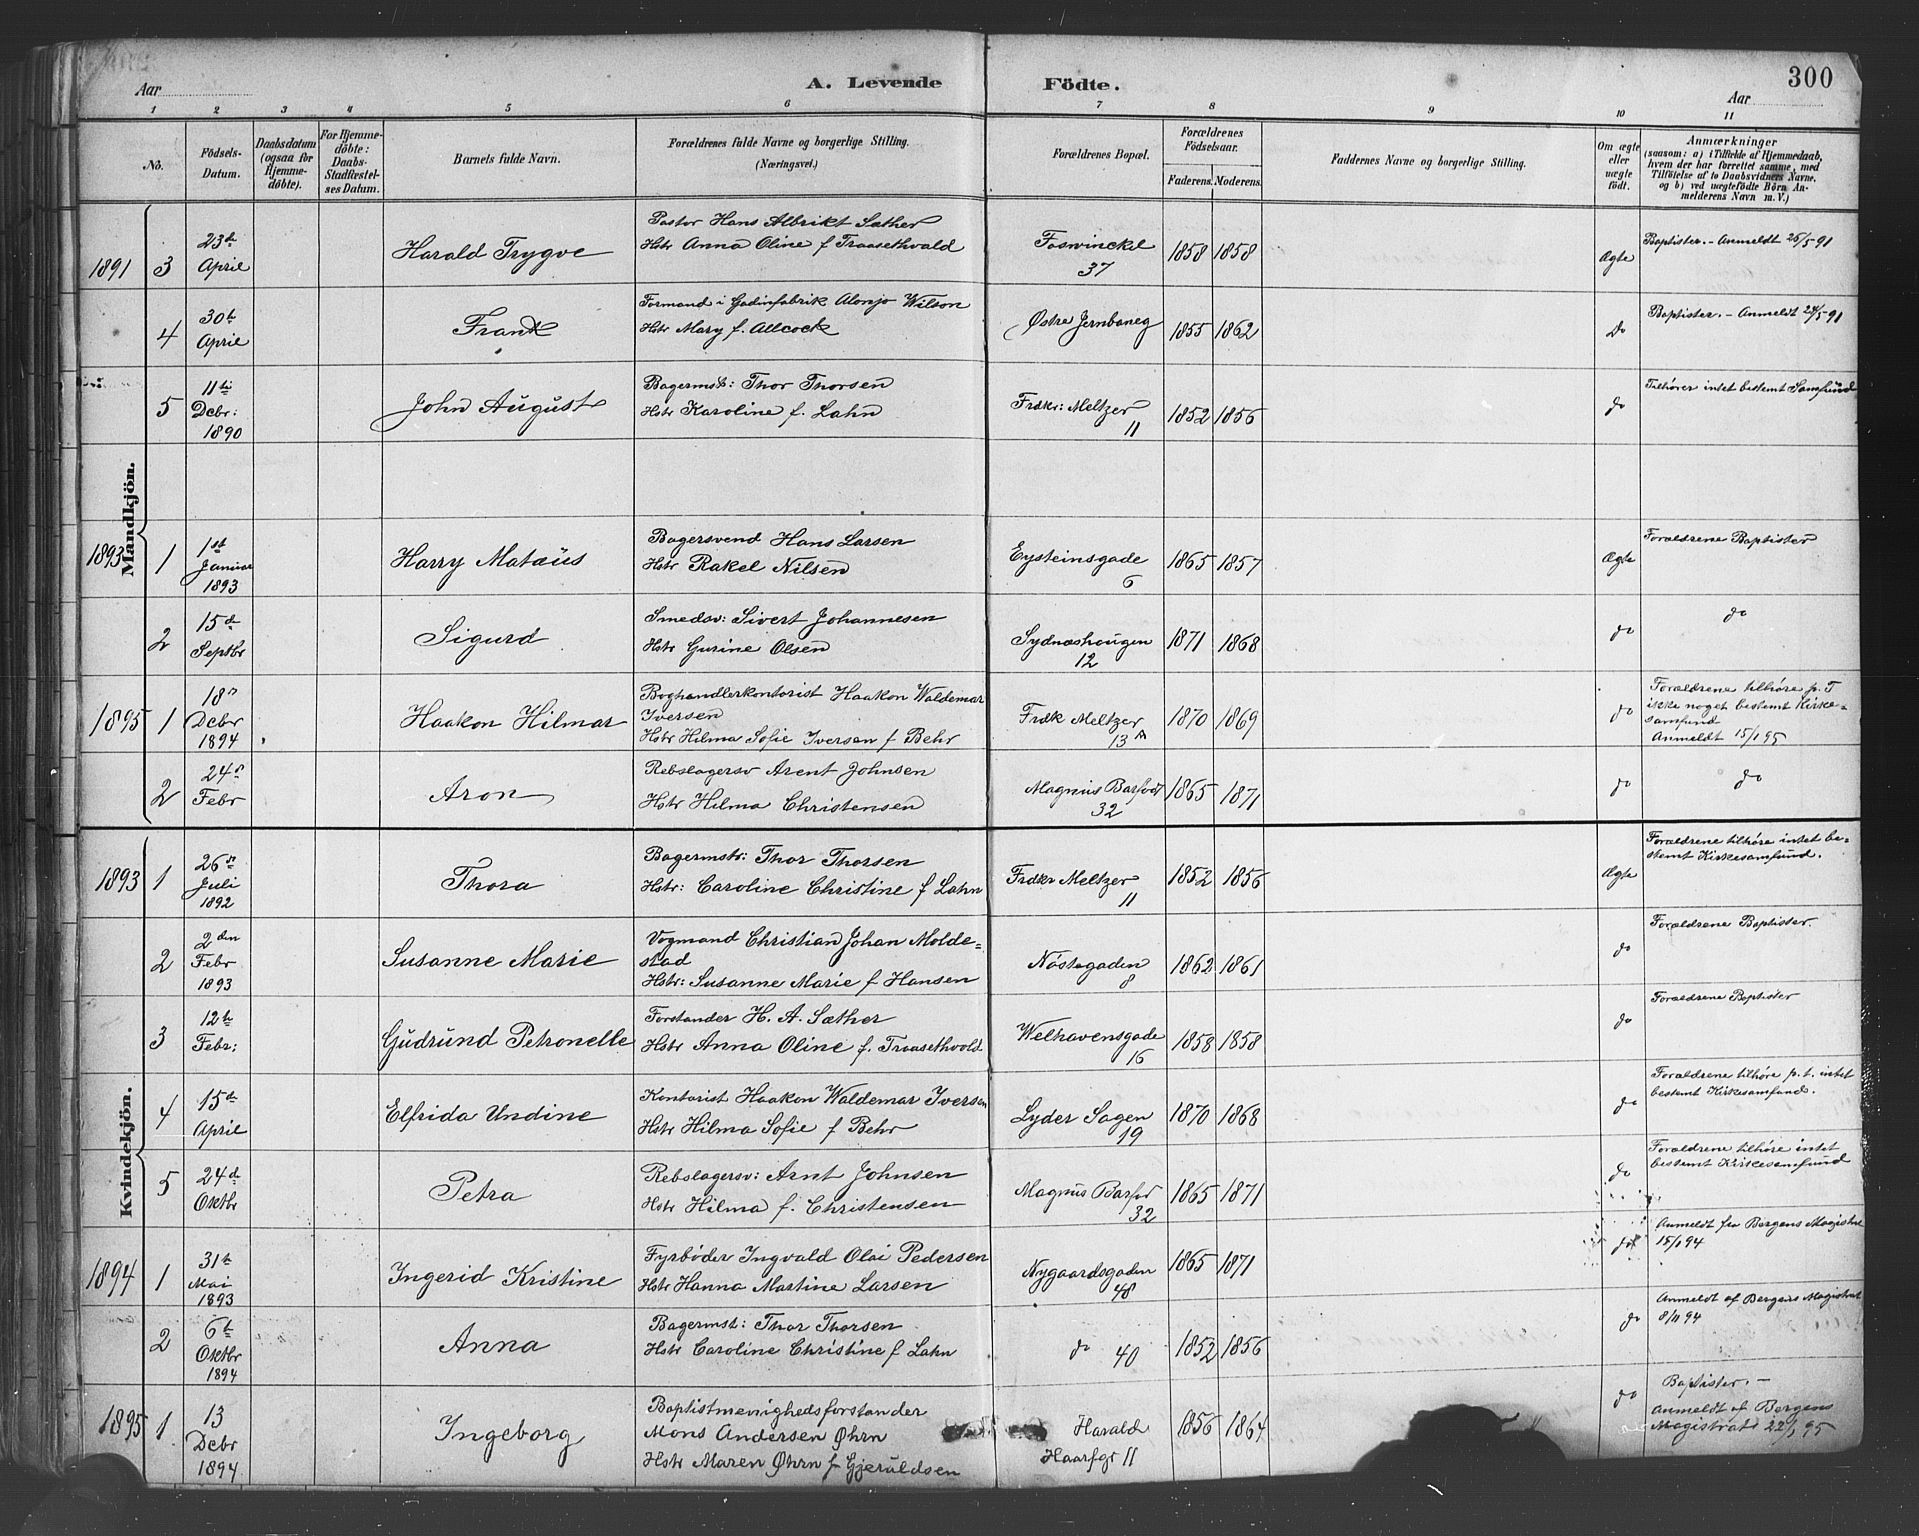 300
Aar
A. Levende Födte.
Aar
1 2 3 4 5 6 7 8 9 10 11
No.
Födsels-Datum.
Daabsdatum (ogsaa for Hjemmedöbte).
For Hjemmedöbte: Daabs-Stadfæstelses Datum.
Barnets fulde Navn.
Forældrenes fulde Navne og borgerlige Stilling. (Næringsvei.)
Forældrenes Bopæl.
Forældrenes Födselsaar.
Faderens. Moderens.
Faddernes Navne og borgerlige Stilling.
Om ægte eller uægte födt.
Anmærkninger
(saasom: a) i Tilfælde af Hjemmedaab,
hvem der har forrettet samme, med
Tilföielse af to Daabsvidners Navne,
og b) ved uægtefödte Börn An-
melderens Navn m. V.)
Mandkjön.
1891 3 23de April Harald Trygve
Pastor Hans Albrikt Sæther
Hstr Anna Oline f Traasethvald
Foswinckel 37 1858 1858 Ægte
Baptister. - Anmeldt 26/5 91
4 30te April Frank
Formand i Gadinfabrik Alonzo Wilson
Hstr Mary f. Allcock
Østre Jernbaneg 1855 1862 Do
Baptister. - Anmeldt 24/5 91
5 11te Dcbr: 1890 John August
Bagermst: Thor Thorsen
Hstr Karoline f. Lahn
Frdkr: Meltzer 11 1852 1856 do
Tilhører intet bestemt Samfund
1893 1 1st Januar 1893 Harry Matæus
Bagersvend Hans Larsen
Hstr Rakel Nilsen
Eysteinsgade 6 1865 1857 Ægte
Forældrene Baptister
2 15de Septbr Sigurd
Smedsv: Sivert Johannesen
Hstr Gurine Olsen
Sydnæshougen 12 1871 1868 do
do
1895 1 18n Dcbr 1894 Haakon Hilmar
Boghandlerkontorist Haakon Waldemar
Iversen
Hstr Hilma Sofie Iversen f Behr
Frdk Meltzer 13A 1870 1869 do
Forældrene tilhøre p. T
ikke noget bestemt Kirke-
samfund
Anmeldt 15/1 95
2 24n Febr Aron
Rebslagersv Arent Johnsen
Hstr Hilma Christensen
Magnus Barfodt 32 1865 1871 do
do
Kvindekjön.
1893 1 26n Juli 1892 Thora
Bagermstr: Thor Thorsen
Hstr: Caroline Christine f Lahn
Frdkr Meltzer 11 1852 1856 Ægte
Forældrene tilhøre intet be-
stemt Kirkesamfund.
2 2den Febr 1893 Susanne Marie
Vogmand Christian Johan Molde-
stad
Hstr: Susanne Marie f Hansen
Nöstegaden 8 1862 1861 do
Forældrene Baptister.
3 12te Febr: Gudrund Petronelle
Forstander H. A. Sæther
Hstr Anna Oline f. Traasethvold
Welhavensgade 16 1858 1858 do
Forældrene Baptister
4 15de April Elfrida Undine
Kontorist Haakon Waldemar Iversen
Hstr Hilma Sofie f Behr
Lyder Sagen 19 1870 1868 do
Forældrene tilhøre p. t. intet
bestemt Kirkesamfund.
5 24d Oktbr Petra
Rebslagersv: Arnt Johnsen
Hstr Hilma f. Christensen
Magnus Barfor 32 1865 1871 do
Forældrene tilhøre intet
bestemt Kirkesamfund
1894 1 31te Mai 1893 Ingerid Kristine
Fyrbøder Ingvald Olai Pedersen
Hstr Hanna Martine Larsen
Nygaardsgaden 48 1865 1871 do
Anmeldt fra Bergens Magistrat
15/1 94
2 6te Oktbr 1894 Anna
Bagermst: Thor Thorsen
Hstr Caroline Christine f Lahn
do 40 1852 1856 do
Anmeldt af Bergens Magistrat
8/11 94
1895 1 13 Dcbr 1894 Ingeborg
Baptistmenighedsforstander
Mons Andersen Øhrn
Hstr Maren Øhrn f Gjeruldsen
Harald Haarfgr 11 1856 1864 do
Baptister. -
Anmeldt af Bergens
Magistrat 22/1 95